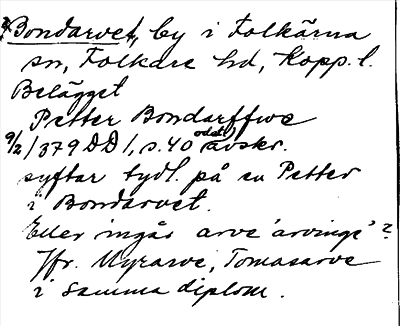 Bondarvet, by i Folkärna
sn, Folkare hd, Kopp. l.
Belägget
Petter Bondarffwe
9/2 1379 DD 1, s. 40 odat.) avskr.
syftar tydl. på en Petter
i Bondarvet.
Eller ingår arve 'arvinge'?
Jfr. Myrarve, Tomasarve
i samma diplom.